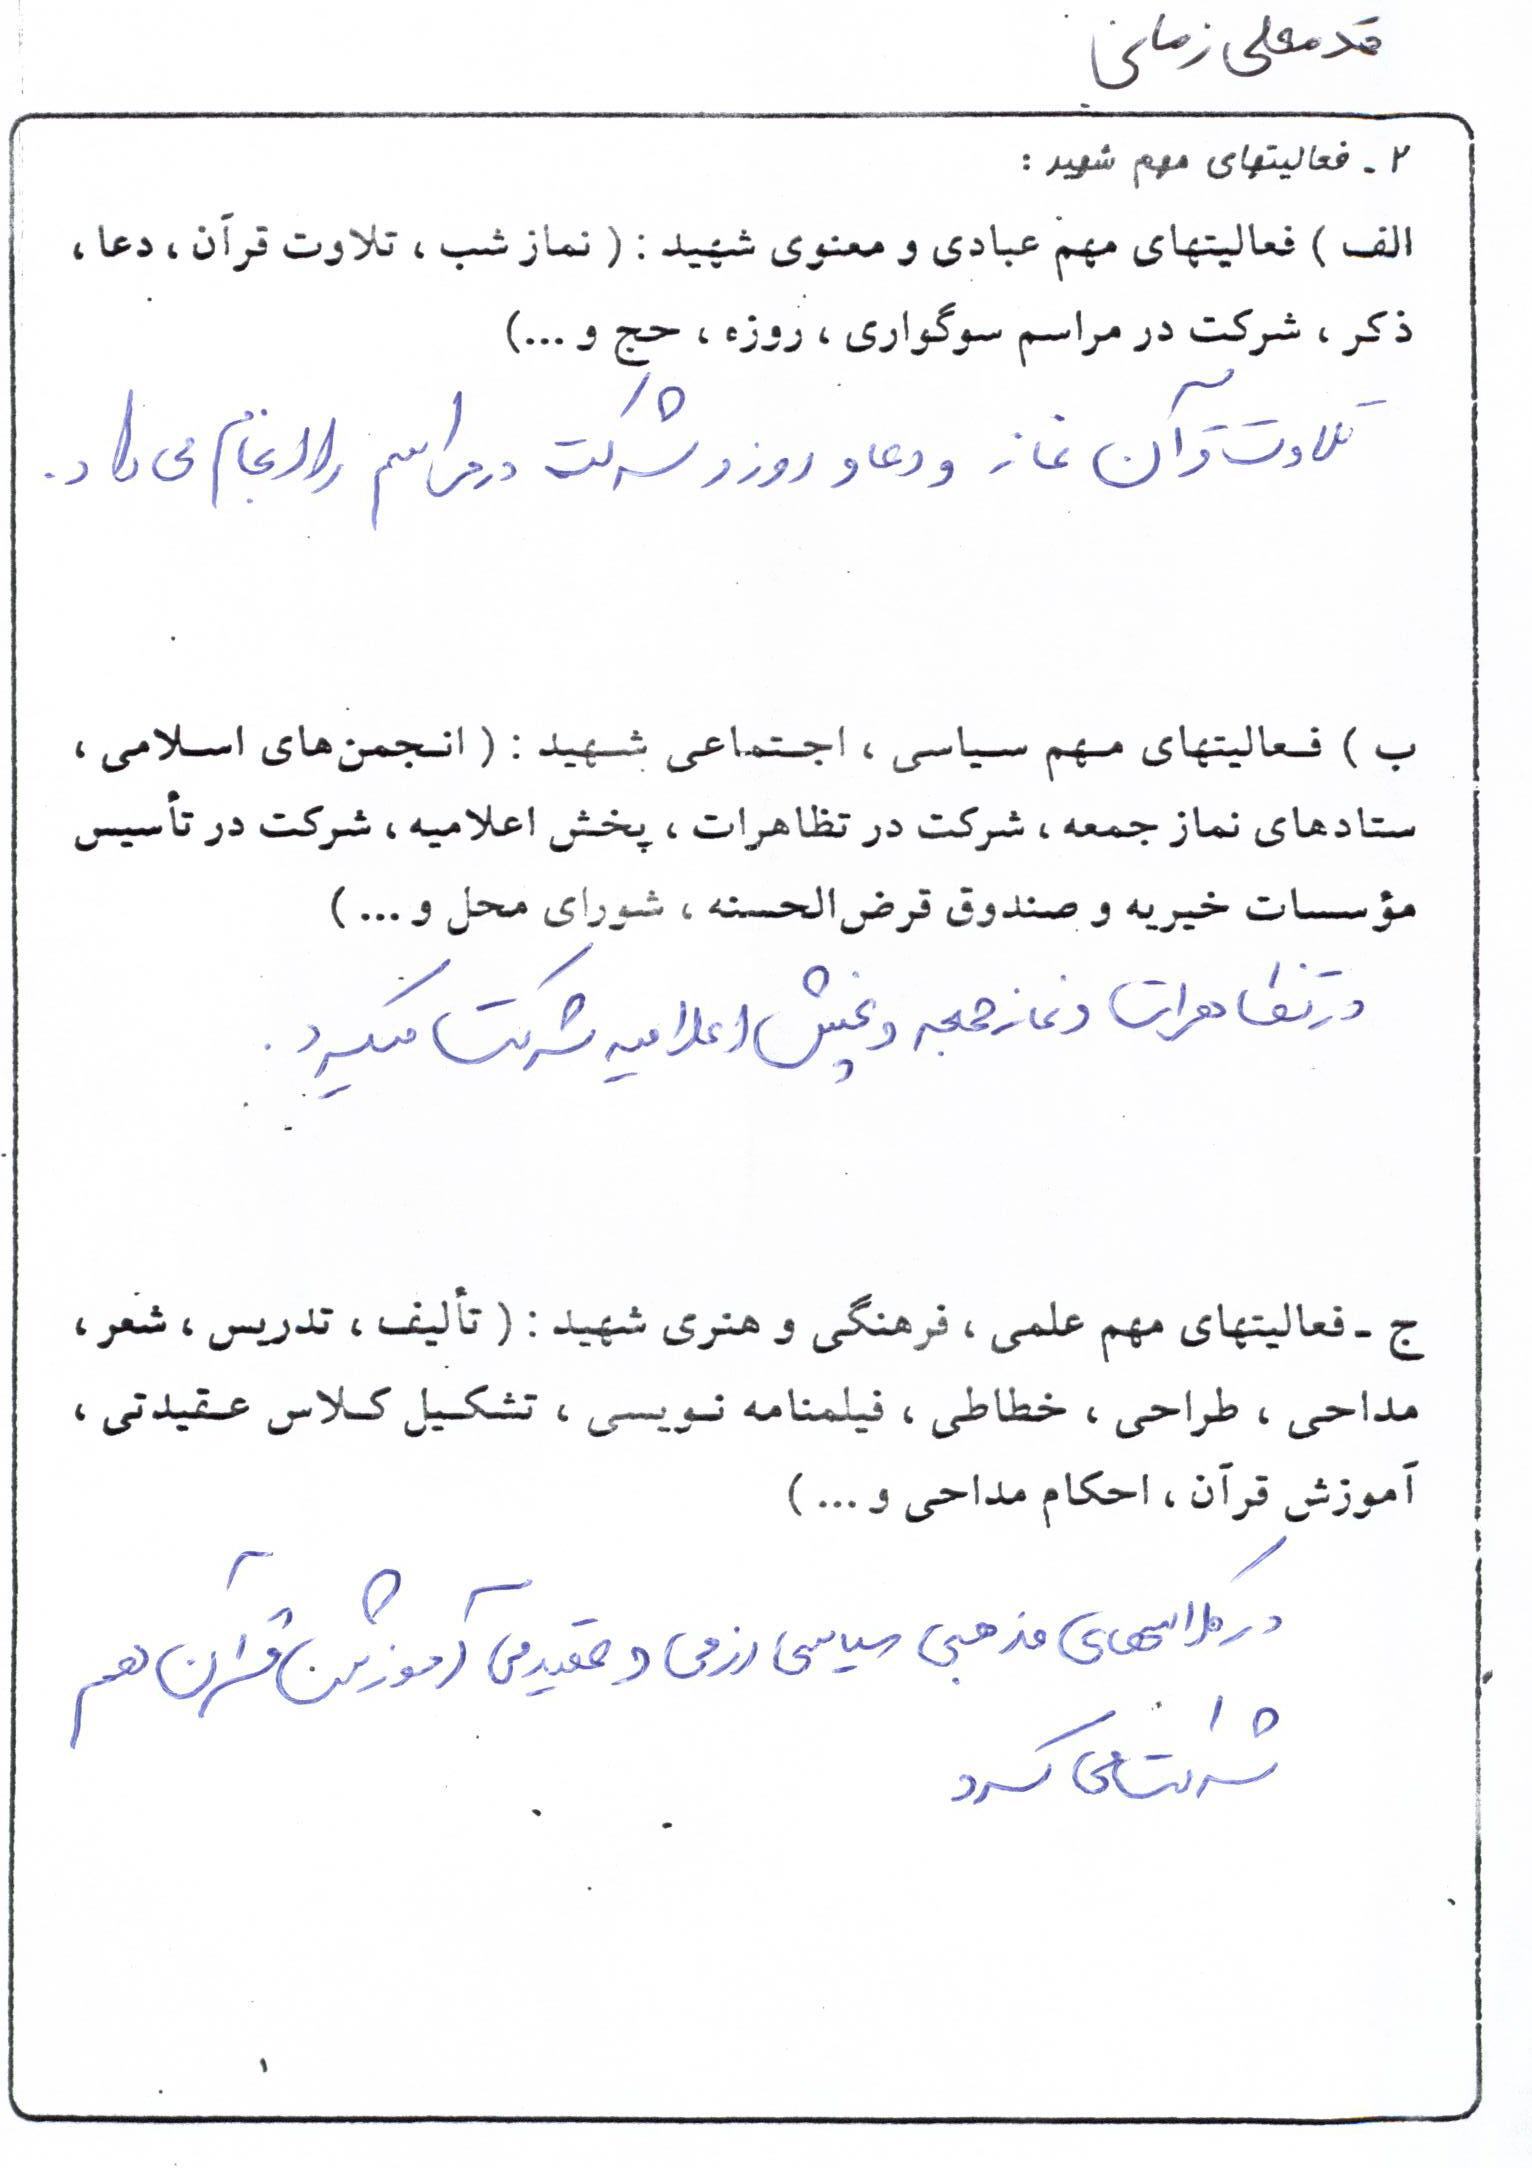 قدمعلی زمانی
۲ - فعالیتهای مهم شهید :
الف ) فعالیتهای مهم عبادی و معنوی شهید : ( نماز شب ، تلاوت قرآن ، دعا ،
ذکر ، شرکت در مراسم سوگواری ، روزه ، حج و ...)
تلاوت قرآن نماز و دعا و روزه شرکت در مراسم را انجام می داد .
ب ) فعالیتهای مهم سیاسی ، اجتماعی شهید : ( انجمن‌های اسلامی ،
ستادهای نماز جمعه ، شرکت در تظاهرات ، پخش اعلامیه ، شرکت در تأسیس
مؤسسات خیریه و صندوق قرض‌الحسنه ، شورای محل و ... )
در تظاهرات و نماز جمعه و پخش اعلامیه شرکت میکرد .
ج - فعالیتهای مهم علمی ، فرهنگی و هنری شهید : ( تألیف ، تدریس ، شعر ،
مداحی ، طراحی ، خطاطی ، فیلمنامه نویسی ، تشکیل کلاس عقیدتی ،
آموزش قرآن ، احکام مداحی و ... )
در کلاسهای مذهبی سیاسی رزمی و آموزش قرآن هم
شرکت می کرد
۱